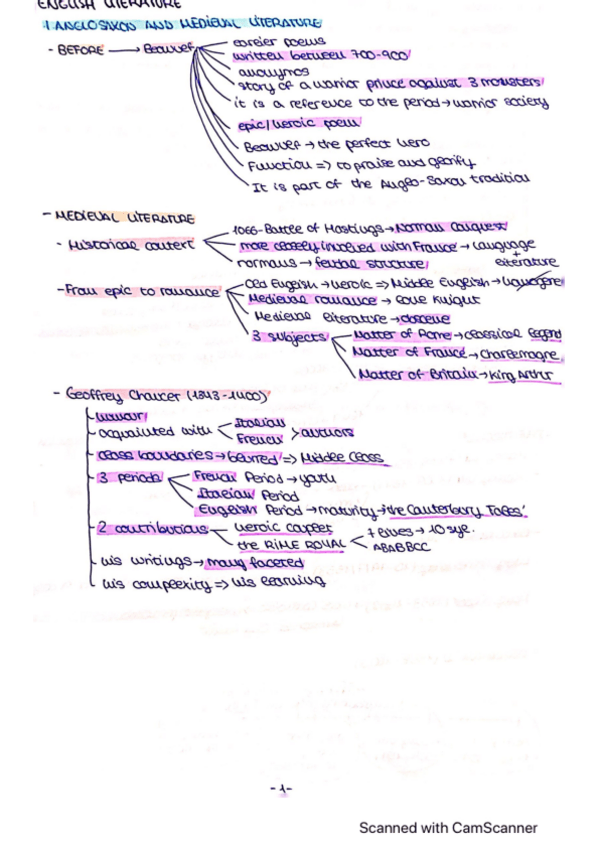 ENGLISH LITERATURE
1. ANGLOSAXON AND MEDIEVAL LITERATURE
- BEFORE → Beowulf
earlier poems
written between 700-900
anonymos
story of a warrior prince against 3 monsters
it is a reference to the period → warrior society
epic/heroic poem
Beowulf → the perfect hero
Function => to praise and glorify
It is part of the Anglo-Saxon tradition
- MEDIEVAL LITERATURE
- Historical context
1066-Battle of Hastings → Norman Conquest
more closely involved with France → Language + literature
normans → feudal structure
- From epic to romance
Old English → heroic => Middle English →
Medieval romance → Love Knight
Medieval literature → obscene
3 subjects
Matter of Rome → classical legend
Matter of France → Charlemagne
Matter of Britain → King Arthur
- Geoffrey Chaucer (1343-1400)
humour
acquainted with
Italian
French
> authors
class boundaries → blurred => Middle Class
3 periods
French Period → youth
Italian Period
English Period → maturity → 'the Canterbury Tales'
2 contributions
heroic couplet
the RIME ROYAL
7 lines → 10 syl.
ABABBCC
his writings → many faceted
his complexity => his learning
-1-
Scanned with CamScanner